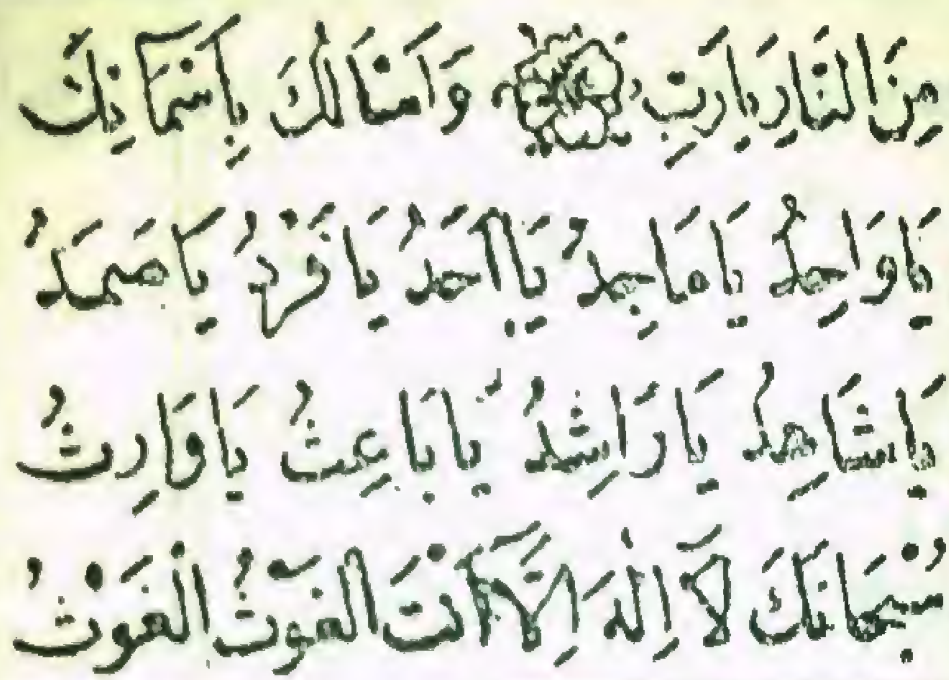 مِنَ النَّارِ يَارَبِّ وَاَسْأَلُكَ بِاَسْمَائِكَ
يَا وَاحِدُ يَا مَاجِدُ يَا اَحَدُ يَا فَرْدُ يَا صَمَدُ
يَا شَاهِدُ يَا رَاشِدُ يَا بَاعِثُ يَا وَارِثُ
سُبْحَانَكَ لَآ اِلٰهَ اِلَّآ اَنْتَ الْغَوْثُ الْغَوْثُ